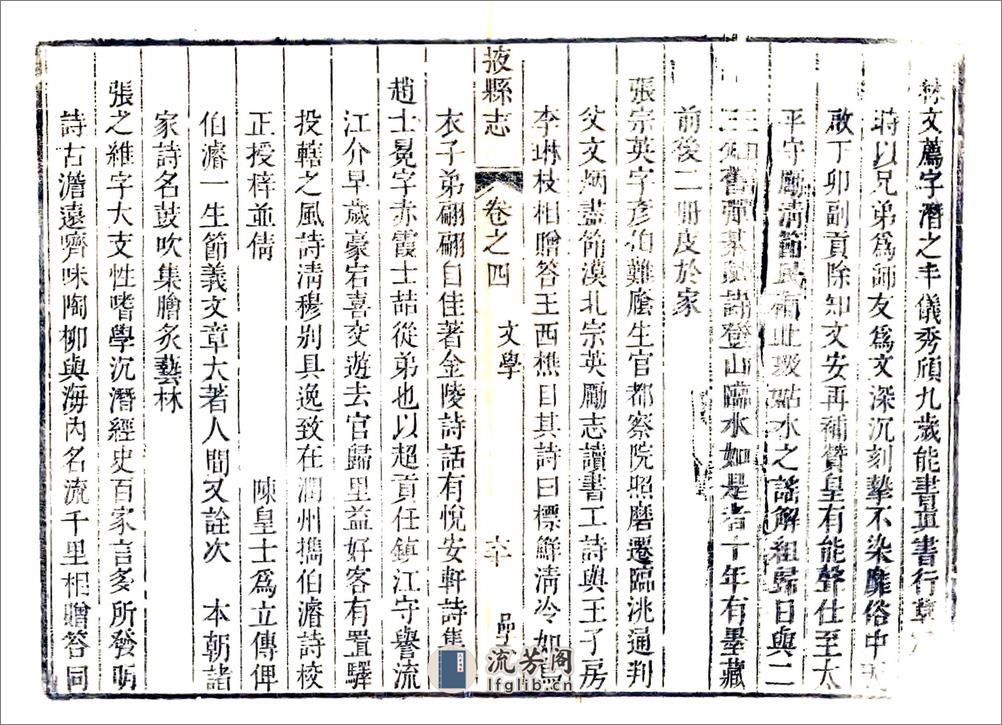 文薦字潛之丰儀秀頎九歲能書眞書行草
時以兄弟爲師友爲文深沉刻摯不染靡俗中天
啟丁卯副貢除知文安再補贊皇有能聲仕至太
平守勵清節民有止啜點水之謠解組歸日與二
三知舊彈棊賦詩登山臨水如是者十年有墨藏
前後二冊庋於家
張宗英字彥伯難廕生官都察院照磨遷臨洮通判
父文炳盡節漠北宗英勵志讀書工詩與王子房
李琳枝相贈答王西樵目其詩曰標鮮清冷如烏
掖縣志 卷之四 文學 六十
衣子弟翩翩自佳著金陵詩話有悅安軒詩集
趙士冕字赤霞士喆從弟也以超貢任鎮江守譽流
江介早歲豪宕喜交遊去官歸里益好客有置驛
投轄之風詩清穆別具逸致在潤州攜伯濬詩校
正授梓並倩 陳皇士爲立傳俾
伯濬一生節義文章大著人間又詮次 本朝諸
家詩名鼓吹集膾炙藝林
張之維字大支性嗜學沉潛經史百家言多所發明
詩古澹遠齊味陶柳與海內名流千里相贈答同
流芳阁
lfglib.cn